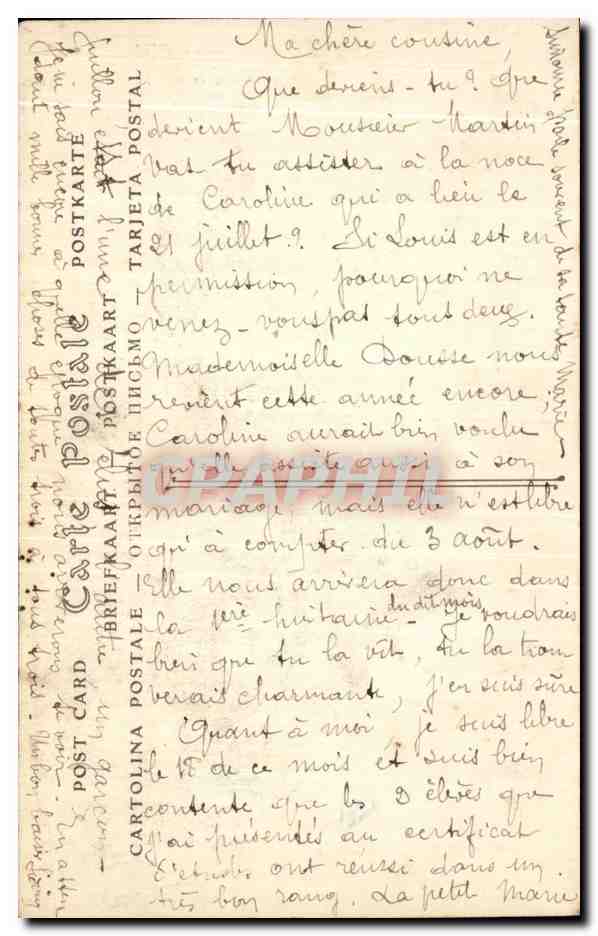 Ma chère cousine,
Que deviens-tu ? Que
devient Monsieur Martin
Vas tu assister à la noce
de Caroline qui a lieu le
21 juillet ? Si Louis est en
permission, pourquoi ne
venez-vous pas tous deux.
Mademoiselle Dousse nous
revient cette année encore,
Caroline aurait bien voulu
qu'elle assiste aussi à son
mariage, mais elle n'est libre
qu'à compter du 3 août.
Elle nous arrivera donc dans
la 1ère huitaine du dit mois - je voudrais
bien que tu la vît, tu la trou
verais charmante, j'en suis sûre
Quant à moi, je suis libre
le 18 de ce mois et suis bien
contente que les 2 élèves que
j'ai présentés au certificat
d'études ont réussi dans un
très bon rang. La petit Marie
l'une était
et l'autre un garçon -
Je ne sais encore à quelle époque nous aurons
te voir. En atten
dant mille bonnes choses de toutes trois à tous trois - Un bon baiser
souvent de sa tante Marie
POST CARD Carte Postale POSTKARTE
BRIEFKAART POSTKAART
CARTOLINA POSTALE — ОТКРЫТОЕ ПИСЬМО — TARJETA POSTAL
CPAPHIL